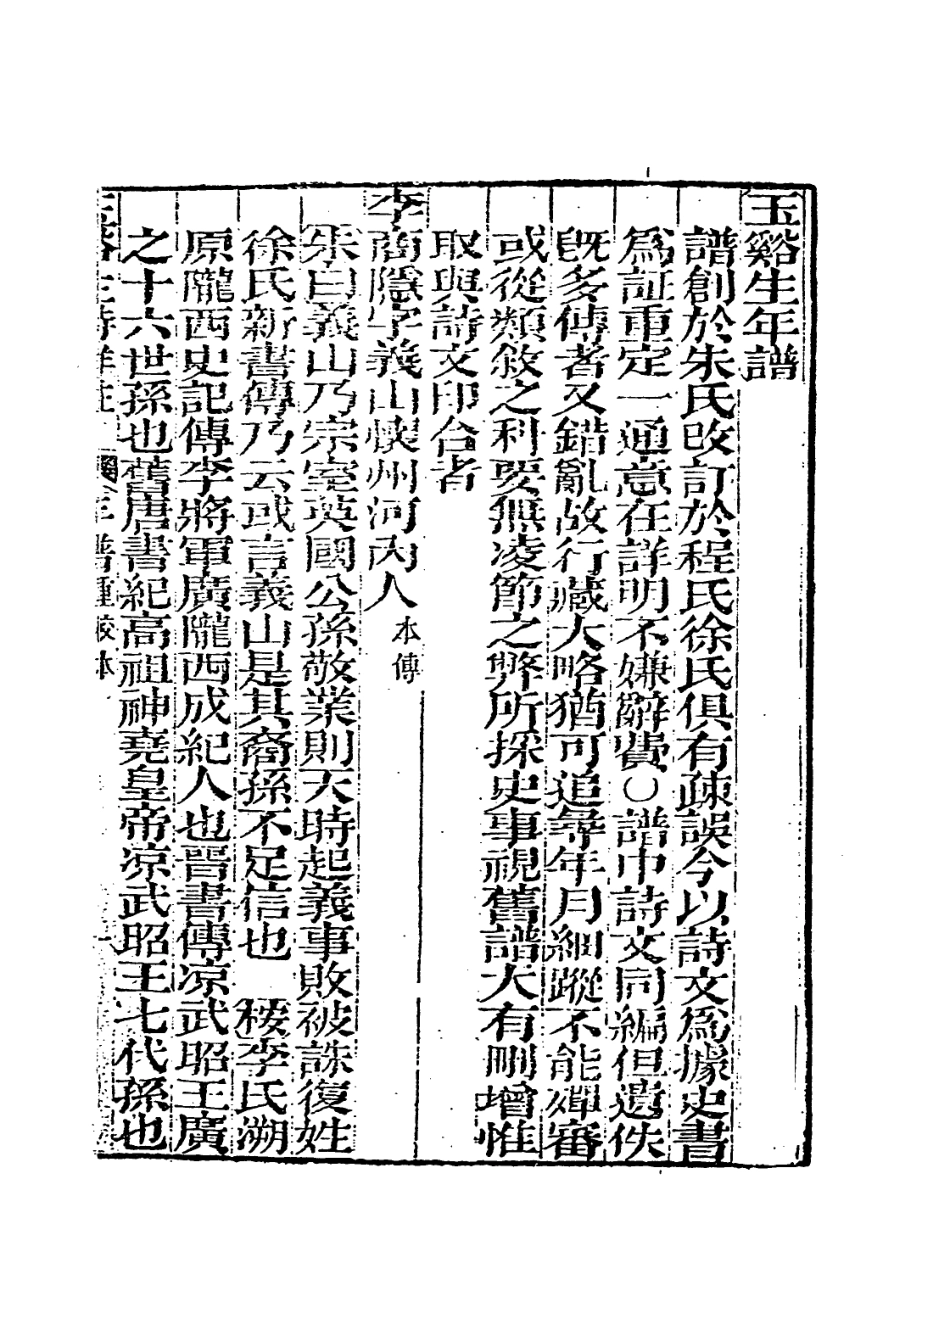 玉谿生年譜
譜創於朱氏改訂於程氏徐氏俱有疎誤今以詩文爲據史書
爲証重定一通意在詳明不嫌辭費○譜中詩文同編但遺佚
旣多傳者又錯亂故行藏大略猶可追尋年月細蹤不能殫審
或從類敘之科要無凌節之弊所採史事視舊譜大有刪增惟
取與詩文印合者
李商隱字義山懷州河內人本傳
朱曰義山乃宗室英國公孫敬業則天時起義事敗被誅復姓
徐氏新書傳乃云或言義山是其裔孫不足信也　按李氏溯
原隴西史記傳李將軍廣隴西成紀人也晉書傳凉武昭王廣
之十六世孫也舊唐書紀高祖神堯皇帝凉武昭王七代孫也
玉谿生詩詳註　年譜重校本　一